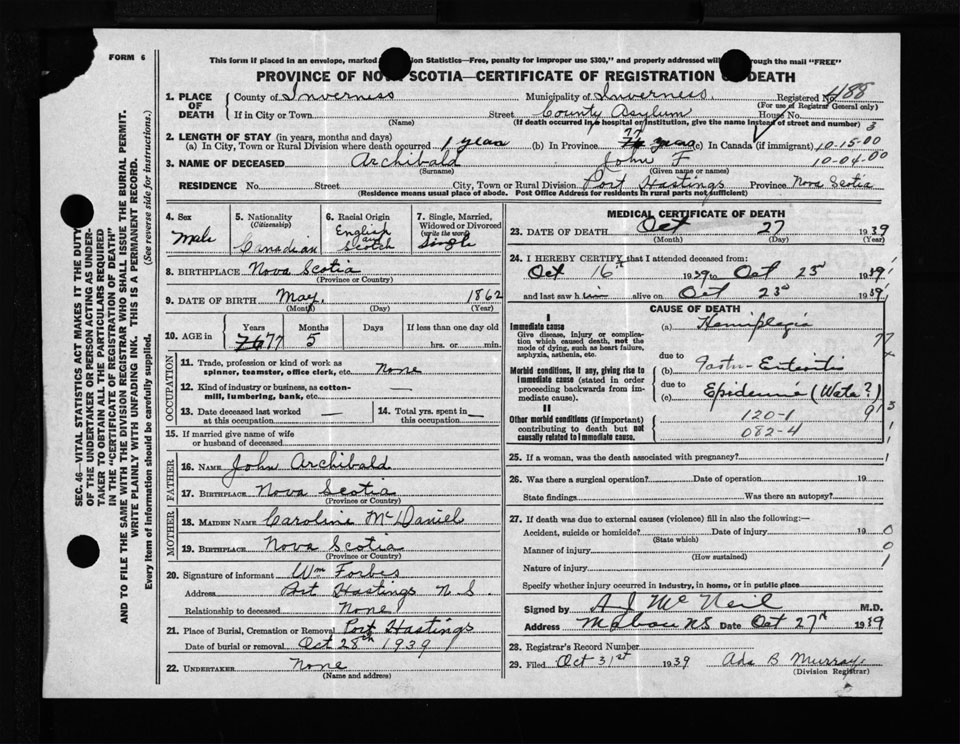 FORM 6
This form if placed in an envelope, marked on Statistics—Free, penalty for improper use $300," and properly addressed will through the mail "FREE"
PROVINCE OF NOVA SCOTIA—CERTIFICATE OF REGISTRATION OF DEATH
1. PLACE OF DEATH County of Inverness Municipality of Inverness. Registered No. 488
(For use of Registrar General only)
If in City or Town Street County Asylum House No.
(Name) (If death occurred in a hospital or institution, give the name instead of street and number) 3
2. LENGTH OF STAY (in years, months and days)
(a) In City, Town or Rural Division where death occurred 1 year (b) In Province 77 years (c) In Canada (if immigrant) 10-15-00
3. NAME OF DECEASED Archibald John F 10-04-00
(Surname) (Given name or names)
RESIDENCE No. Street City, Town or Rural Division Port Hastings Province Nova Scotia
(Residence means usual place of abode. Post Office Address for residents in rural parts not sufficient)
4. Sex Male
5. Nationality (Citizenship) Canadian
6. Racial Origin English and Scotch
7. Single, Married, Widowed or Divorced (write the word) Single
8. BIRTHPLACE Nova Scotia
(Province or Country)
9. DATE OF BIRTH May. 1862
(Month) (Day) (Year)
10. AGE in Years 76 77 Months 5 Days If less than one day old hrs. or min.
OCCUPATION
11. Trade, profession or kind of work as spinner, teamster, office clerk, etc. None
12. Kind of industry or business, as cotton-mill, lumbering, bank, etc. —
13. Date deceased last worked at this occupation — 14. Total yrs. spent in this occupation —
15. If married give name of wife or husband of deceased
FATHER
16. NAME John Archibald
17. BIRTHPLACE Nova Scotia
(Province or Country)
MOTHER
18. MAIDEN NAME Caroline McDaniel
19. BIRTHPLACE Nova Scotia
(Province or Country)
20. Signature of informant Wm Forbes
Address Port Hastings N.S.
Relationship to deceased None
21. Place of Burial, Cremation or Removal Port Hastings
Date of burial or removal Oct 28th 1939
22. UNDERTAKER None
(Name and address)
MEDICAL CERTIFICATE OF DEATH
23. DATE OF DEATH Oct 27 1939
(Month) (Day) (Year)
24. I HEREBY CERTIFY that I attended deceased from:
Oct 16th 1939 to Oct 23d 1939
and last saw him alive on Oct 23d 1939
CAUSE OF DEATH
I
Immediate cause
Give disease, injury or complication which caused death, not the mode of dying, such as heart failure, asphyxia, asthenia, etc.
(a) Hemiplegia
due to
Morbid conditions, if any, giving rise to immediate cause (stated in order proceeding backwards from immediate cause).
(b) Gastro-Enteritis
due to
(c) Epidemic (Wata?)
II
Other morbid conditions (if important) contributing to death but not causally related to immediate cause.
120-1
082-4
25. If a woman, was the death associated with pregnancy?
26. Was there a surgical operation? Date of operation 19
State findings Was there an autopsy?
27. If death was due to external causes (violence) fill in also the following:—
Accident, suicide or homicide? Date of injury 19
(State which)
Manner of injury
(How sustained)
Nature of injury
Specify whether injury occurred in industry, in home, or in public place
Signed by A J McNeil M.D.
Address Mabou NS Date Oct 27th 1939
28. Registrar's Record Number
29. Filed Oct 31st 1939 Ada B Murray
(Division Registrar)
SEC. 46—VITAL STATISTICS ACT MAKES IT THE DUTY
OF THE UNDERTAKER OR PERSON ACTING AS UNDER-
TAKER TO OBTAIN ALL THE PARTICULARS REQUIRED
IN THE "CERTIFICATE OF REGISTRATION OF DEATH"
AND TO FILE THE SAME WITH THE DIVISION REGISTRAR WHO SHALL ISSUE THE BURIAL PERMIT.
WRITE PLAINLY WITH UNFADING INK. THIS IS A PERMANENT RECORD.
Every item of information should be carefully supplied. (See reverse side for instructions.)